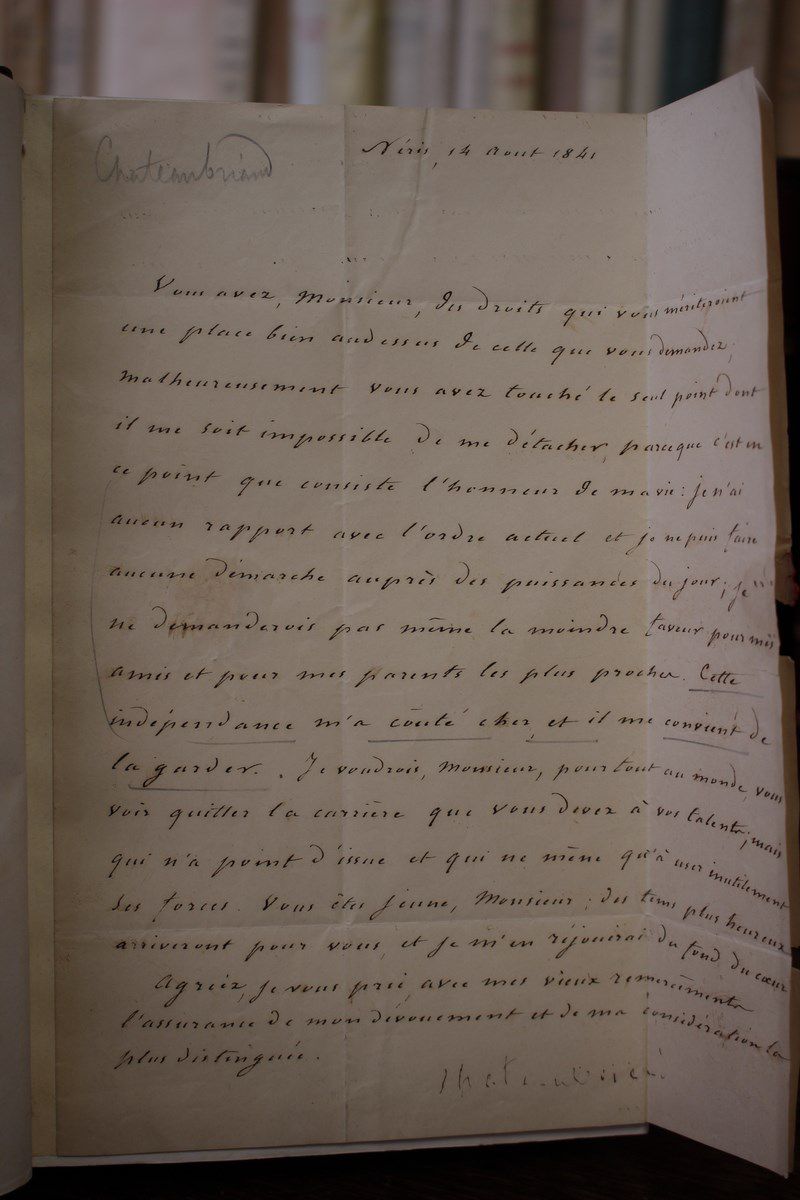 Chateaubriand
Néris, 14 aout 1841
Vous avez, Monsieur, des droits qui vous mériteroient
une place bien audessus de celle que vous demandez;
malheureusement vous avez touché le seul point dont
il me soit impossible de me détacher, parceque c'est en
ce point que consiste l'honneur de ma vie: je n'ai
aucun rapport avec l'ordre actuel et je ne puis faire
aucune démarche auprès des puissances du jour; je
ne demanderois pas même la moindre faveur pour mes
amis et pour mes parents les plus proches. Cette
indépendance m'a couté cher, et il me convient de
la garder. Je voudrois, Monsieur, pour tout au monde, vous
voir quitter la carrière que vous devez à vos talents; mais
qui n'a point d'issue et qui ne mène qu'à user inutilement
les forces. Vous êtes jeune, Monsieur; des tems plus heureux
arriveront pour vous, et je m'en réjouirai du fond du cœur
Agréez, je vous prie, avec mes vieux remerciments
l'assurance de mon dévouement et de ma considération la
plus distinguée.
Chateaubriand